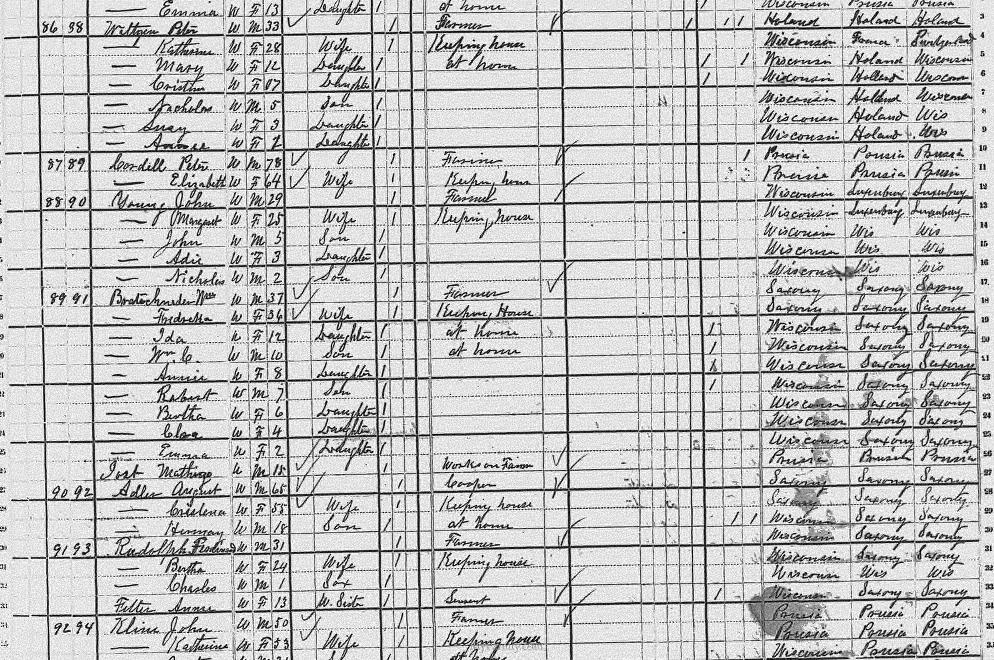 — Emma W F 13 Daughter / at home Wisconsin Prussia Prussia
86 88 Wittgen Peter W M 33 / Farmer / / / Holand Holand Holand 3
— Katherine W F 28 Wife / Keeping house Wisconsin France 4
— Mary W F 12 Daughter / at home / / Wisconsin Holand Wisconsin 5
— Cristina W F 07 Daughter / / Wisconsin Holland Wiscon 6
— Nicholas W M 5 Son / Wisconsin Holland Wiscon 7
— Susy W F 3 Daughter / Wisconsin Holand Wis 8
— W F 2 Daughter / Wisconsin Holand Wis 9
87 89 Cordell Peter W M 78 / Farmer / Prusia Prusia Prussia 10
— Elizabeth W F 64 Wife / Keeping house Prussia Prussia 11
88 90 Young John W M 29 / Farmer Wisconsin Luxenburg Luxenburg 12
— Margaret W F 25 Wife / Keeping house Wisconsin Luxenburg Luxenburg 13
— John W M 5 Son / Wisconsin Wis Wis 14
— Adie W F 3 Daughter / Wisconsin Wis Wis 15
— Nicholas W M 2 Son / Wisconsin Wis Wis 16
89 91 W M 37 / Farmer Saxony Saxony Saxony 17
— W F 36 Wife / Keeping House Saxony Saxony Saxony 18
— Ida W F 12 Daughter / at home / Wisconsin Saxony Saxony 19
— Wm C. W M 10 Son / at home / Wisconsin Saxony Saxony
— Annie W F 8 Daughter / / Wisconsin Saxony Saxony 21
— Robert W M 7 Son / / Wisconsin Saxony Saxony
— Bertha W F 6 Daughter / Wisconsin Saxony Saxony 23
— Clara W F 4 Daughter / Wisconsin Saxony Saxony 24
— Emma W F 2 Daughter / Wisconsin Saxony Saxony 25
Jost W M 15 Works on Farm Prusia Prusia Prussia 26
90 92 Adler August W M 65 / Cooper Saxony Saxony Saxony 27
— Cristena W F 55 Wife / Keeping house Saxony Saxony Saxony 28
— Herman W M 18 Son / at home / / Wisconsin Saxony Saxony 29
91 93 Rudolph W M 31 / Farmer Wisconsin Saxony Saxony 30
— Bertha W F 24 Wife / Keeping house Wisconsin Saxony Saxony 31
— Charles W M 1 Son / Wisconsin Wis Wis 32
Filter Annie W F 13 W. Sister / Servent / Wisconsin Saxony Saxony 33
92 94 Kline John W M 50 / Farmer Prusia Prusia Prusia 34
— Katherine W F 53 Wife / Keeping house Prussia Prussia Prussia
at home Wisconsin Prussia Prussia